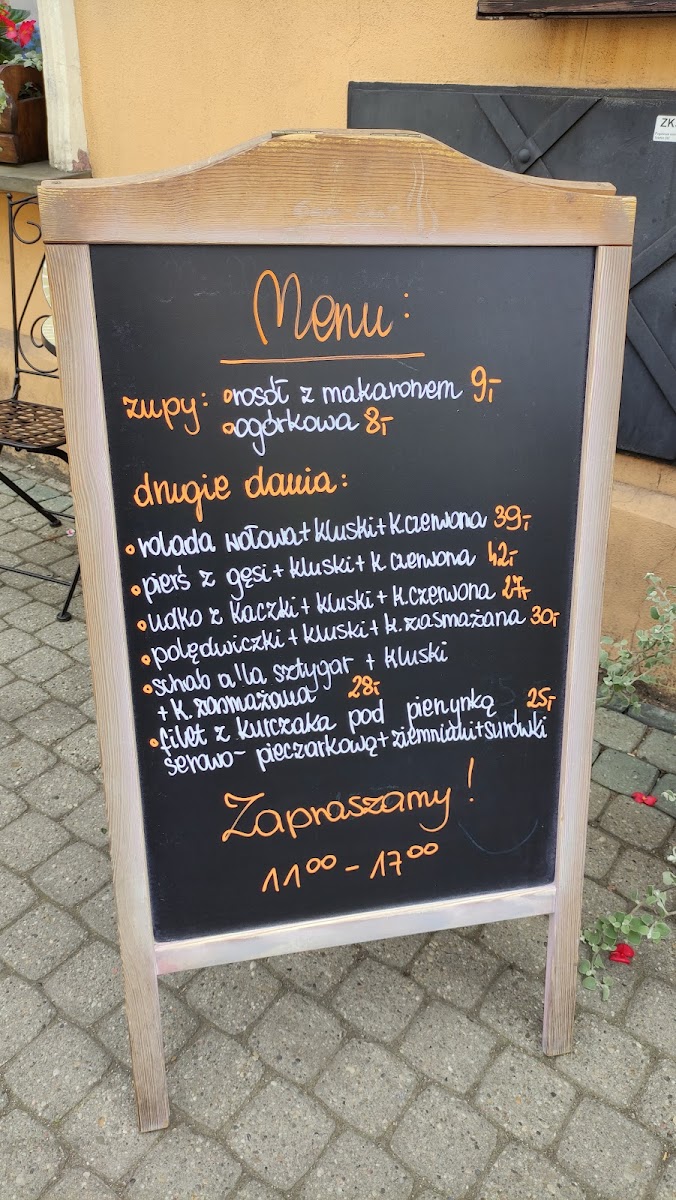 Menu:
zupy: rosół z makaronem 9,-
ogórkowa 8,-
drugie dania:
rolada wołowa + kluski + k.czerwona 39,-
pierś z gęsi + kluski + k czerwona 42,-
udko z kaczki + kluski + k.czerwona 27,-
polędwiczki + kluski + k.zasmażana 30,-
schab alla sztygar + kluski
+ k. zasmażana 28,-
filet z kurczaka pod pierzynką 25,-
serowo-pieczarkową + ziemniaki + surówki
Zapraszamy!
11⁰⁰ - 17⁰⁰